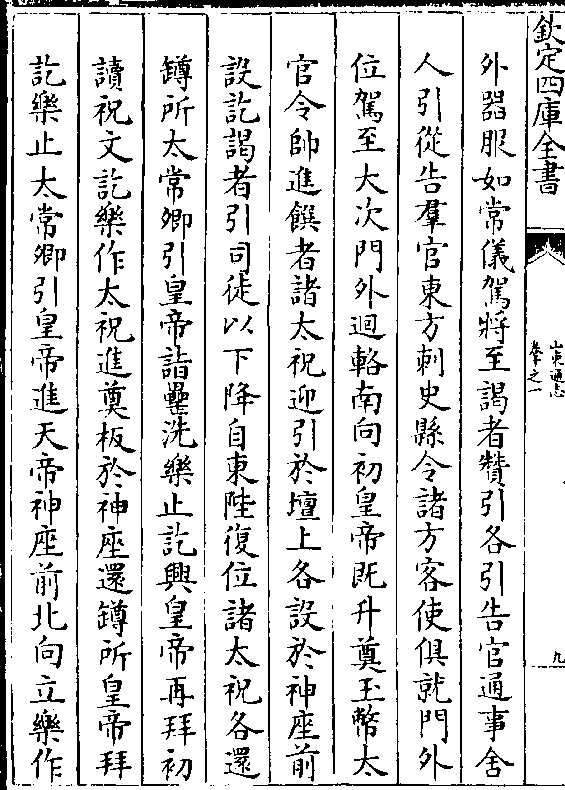 欽定四庫全書
山東通志
卷十之一
九
外器服如常儀駕將至謁者贊引各引告官通事舍
人引從告羣官東方刺史縣令諸方客使俱就門外
位駕至大次門外迴輅南向初皇帝既升奠玉幣太
官令帥進饌者諸太祝迎引於壇上各設於神座前
設訖謁者引司徒以下降自東陛復位諸太祝各還
罇所太常卿引皇帝詣罍洗樂止訖興皇帝再拜初
讀祝文訖樂作太祝進奠板於神座還罇所皇帝拜
訖樂止太常卿引皇帝進天帝神座前北向立樂作